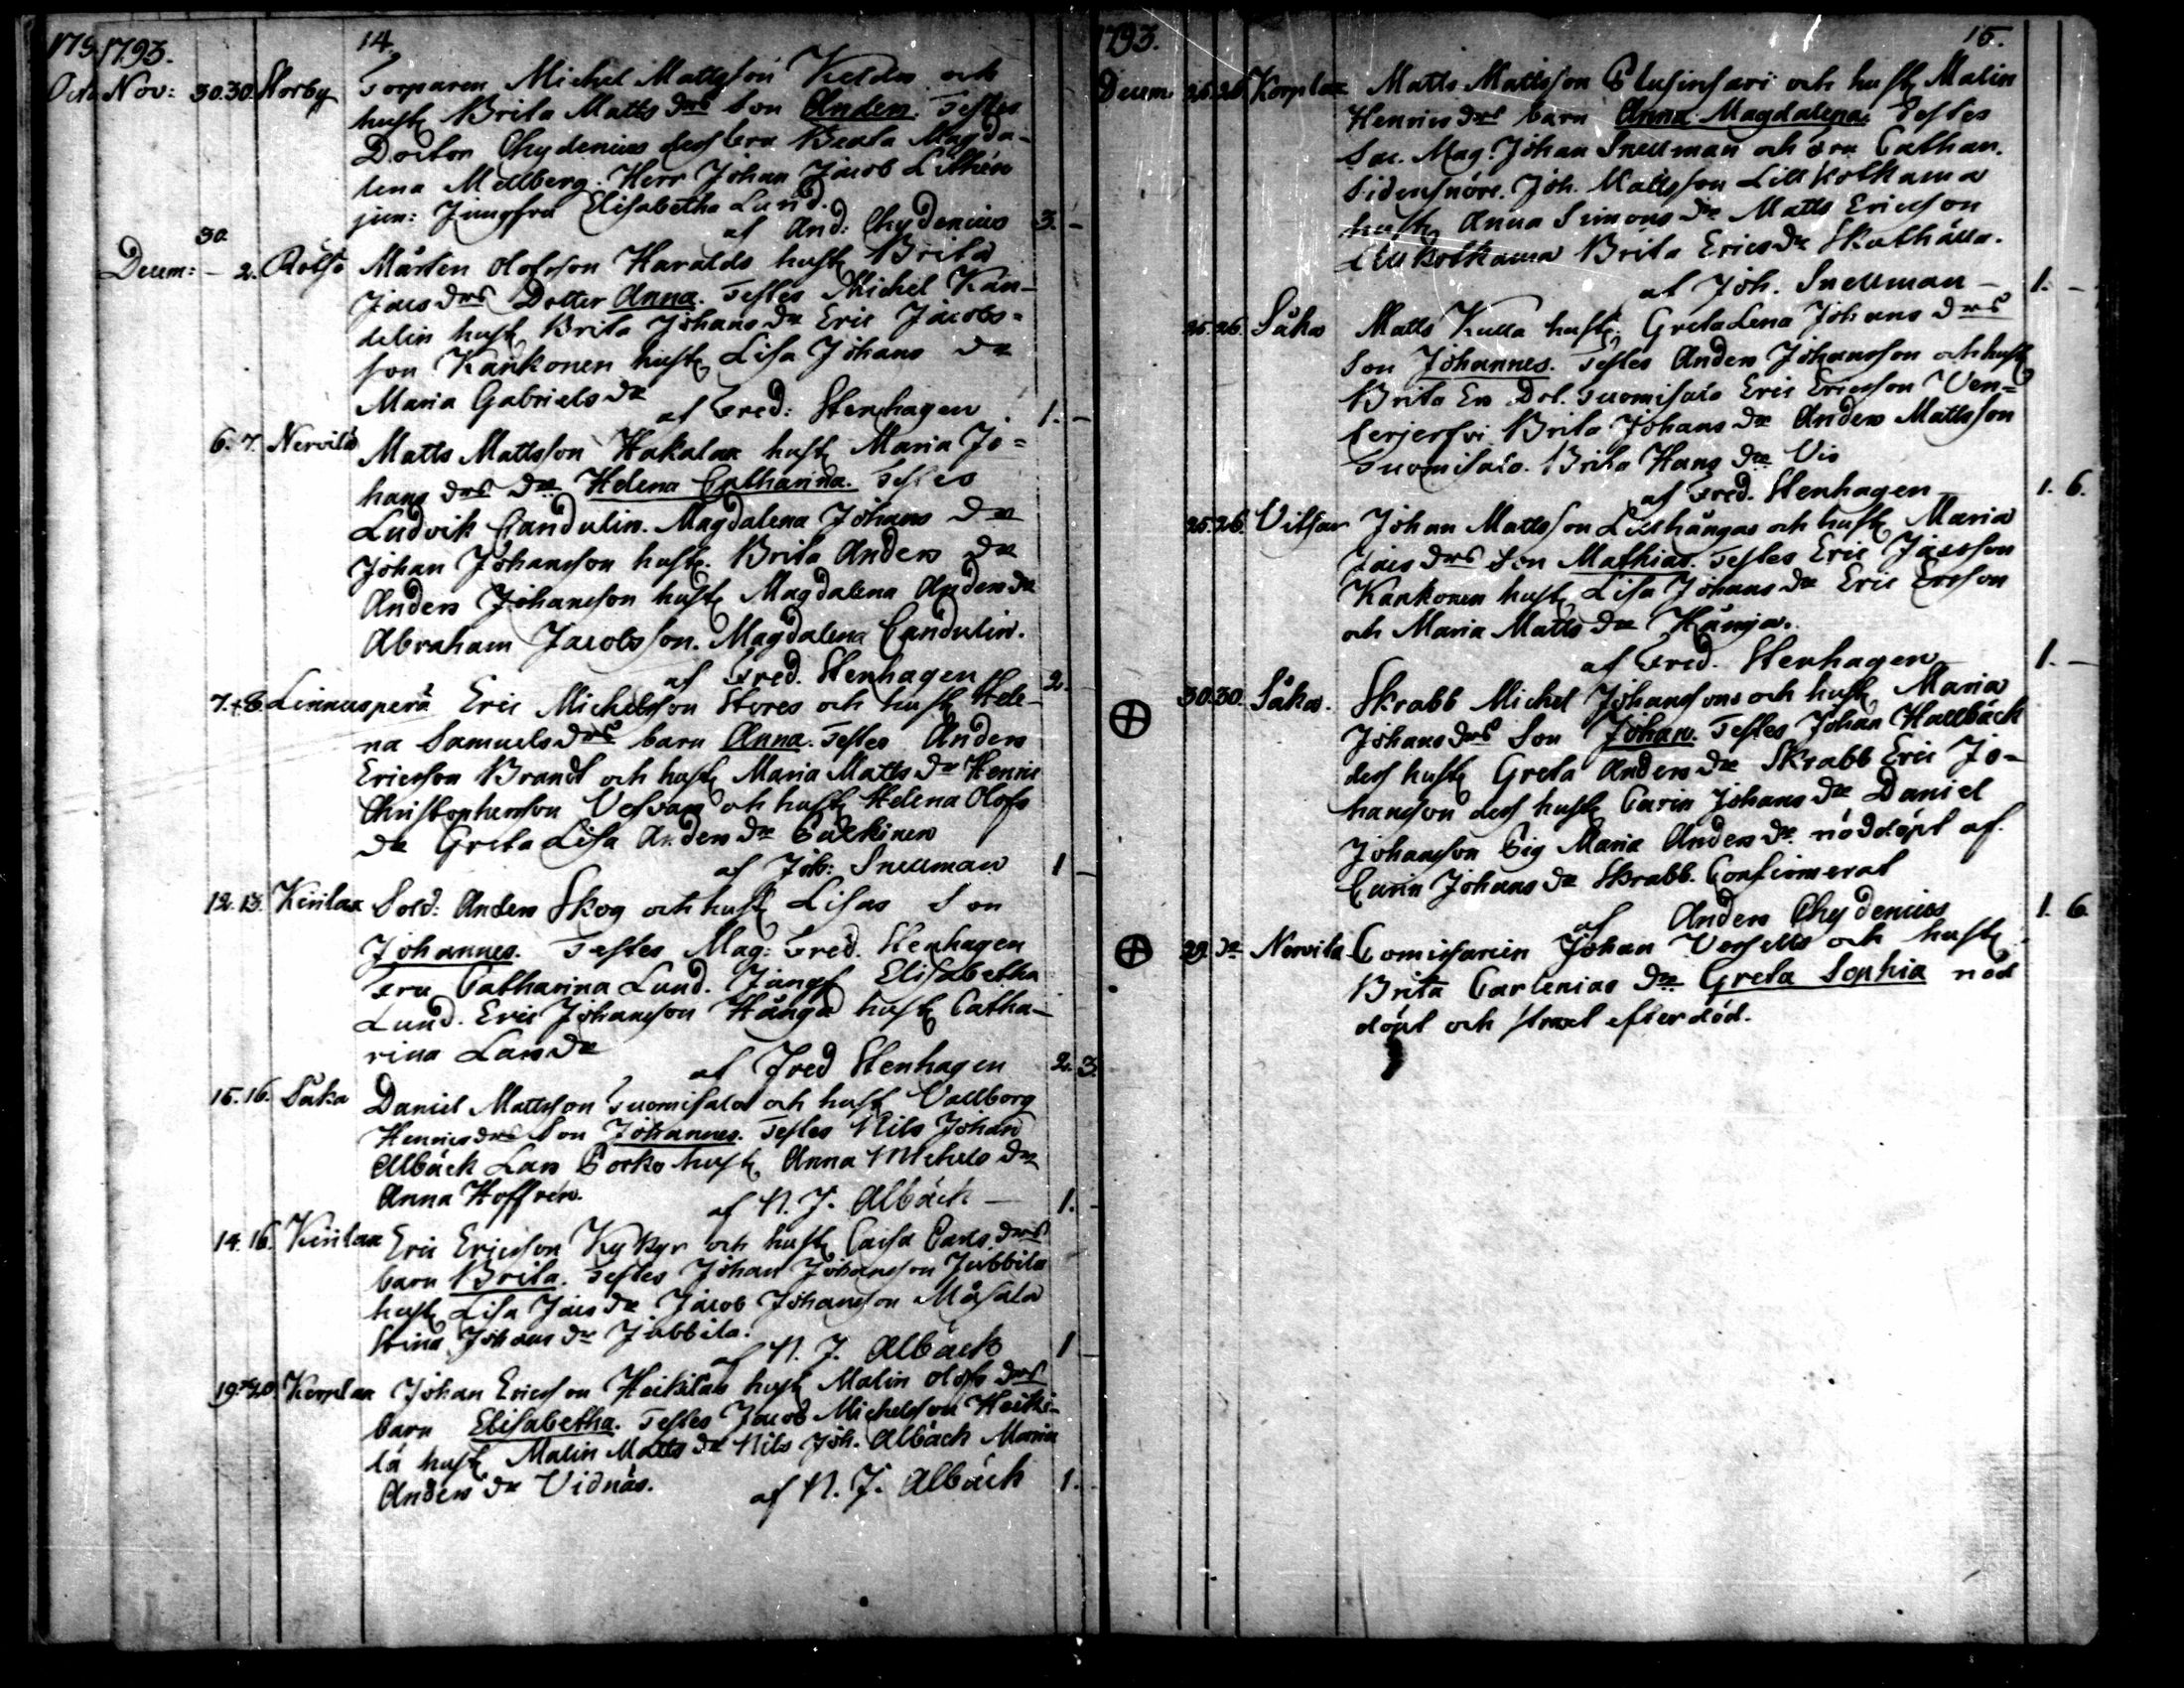 1793. 14.
Nov: 30.30. Storby Torparen Michel Mattsson Keldo och
hust. Brita Matts drs Son Anders. Testes
Doctor Chydenius dess Fru Beata Magda-
lena Mellberg. Herr Johan Jacob Lithén
jun: Jungfru Elisabetha Lund.
af And: Chydenius 3. -
30.
Decem: - 2. Rötsö Mårten Olofsson Haralds hust. Brita
Jacs drs Dotter Anna. Testes Michel Kan-
delin hust. Brita Johans dr Eric Jacobs-
son Kankonen hust. Lisa Johans dr
Maria Gabriels dr
af Fred: Stenhagen 1. -
6. 7. Nervila Matts Mattsson Hakalax hust. Maria Jo-
hans drs dr Helena Catharina. Testes
Ludvik Candulin. Magdalena Johans dr
Johan Johansson hust. Brita Anders dr
Anders Johansson hust. Magdalena Anders dr
Abraham Jacobsson. Magdalena Candulin.
af Fred. Stenhagen 2.
7. 8. Linnusperä Eric Michelsson Stores och hust. Hele-
na Samuels drs barn Anna. Testes Anders
Ericsson Brandt och hust. Maria Matts dr Henric
Christophersson och hust. Helena Olofs
dr Greta Lisa Anders dr Pulkinen
af Joh: Snellman 1 -
12. 13. Kirilax Sold: Anders Skog och hust. Lisas Son
Johannes. Testes Mag: Fred. Stenhagen
Fru Catharina Lund. Jungf. Elisabetha
Lund. Eric Johansson Hånga hust. Catha-
rina Lars dr
af Fred Stenhagen 2. 3.
15. 16. Såka Daniel Mattsson Tuomisalo och hust. Vallborg
Henrics drs Son Johannes. Testes Nils Johan
Albäck Lars Porko hust. Anna Michels dr
Anna Hoffrén.
af N. J. Albäck - 1. -
14. 16. Kirilax Eric Ericsson Kykyr och hust. Caisa Carls drs
barn Brita. Testes Johan Johansson Jubbila
hust. Lisa Jacs dr Jacob Johansson Måsala
Stina Johans dr Jubbila.
af N. J. Albäck 1 -
19. 20. Korplax Johan Ericsson Heikilas hust. Malin Olofs drs
barn Elisabetha. Testes Jacob Michelsson Heiki-
lä hust. Malin Matts dr Nils Joh. Albäck Maria
Anders dr Vidnäs.
af N. J. Albäck 1. -
1793. 15.
Decem. 25.26 Korplax Matts Mattsson Plusinsari och hust. Malin
Henrics drs barn Anna Magdalena. Testes
Sac. Mag. Johan Snellman och Fru Cathar.
Sidensnöre. Joh. Mattsson Lill Kotkama
hust. Anna Simons dr Matts Ericsson
Lill Kotkama Brita Erics dr Skuthälla.
af Joh. Snellman - 1. -
25.26. Såka Matts Kulla hust. Greta Lena Johans drs
Son Johannes. Testes Anders Johansson och hust.
Brita Er. Dot. Tuomisalo Eric Ericsson Ven-
Brita Johans dr Anders Mattsson
Tuomisalo. Brita Hans dr Vis
af Fred. Stenhagen 1. 6.
25.26. Vitsar Johan Mattsson Lillhångas och hust. Maria
Jacs drs Son Mathias. Testes Eric Jacsson
Kankonen hust. Lisa Johans dr Eric Ersson
och Maria Matts dr Hånga.
af Fred. Stenhagen 1. -
30.30. Såka. Skrabb Michel Johanssons och hust. Maria
Johans drs Son Johan. Testes Johan Hallbäck
dess hust. Greta Anders dr Skrabb Eric Jo-
hansson dess hust. Carin Johans dr Daniel
Johansson Pig. Maria Anders dr nöddöpt af
Carin Johans dr Skrabb. Confirmerat
af Anders Chydenius 1. 6.
29. Nervila Comissarien Johan Vessells och hust.
Brita Carlenias dr Greta Sophia nöd
döpt och strax efter död.